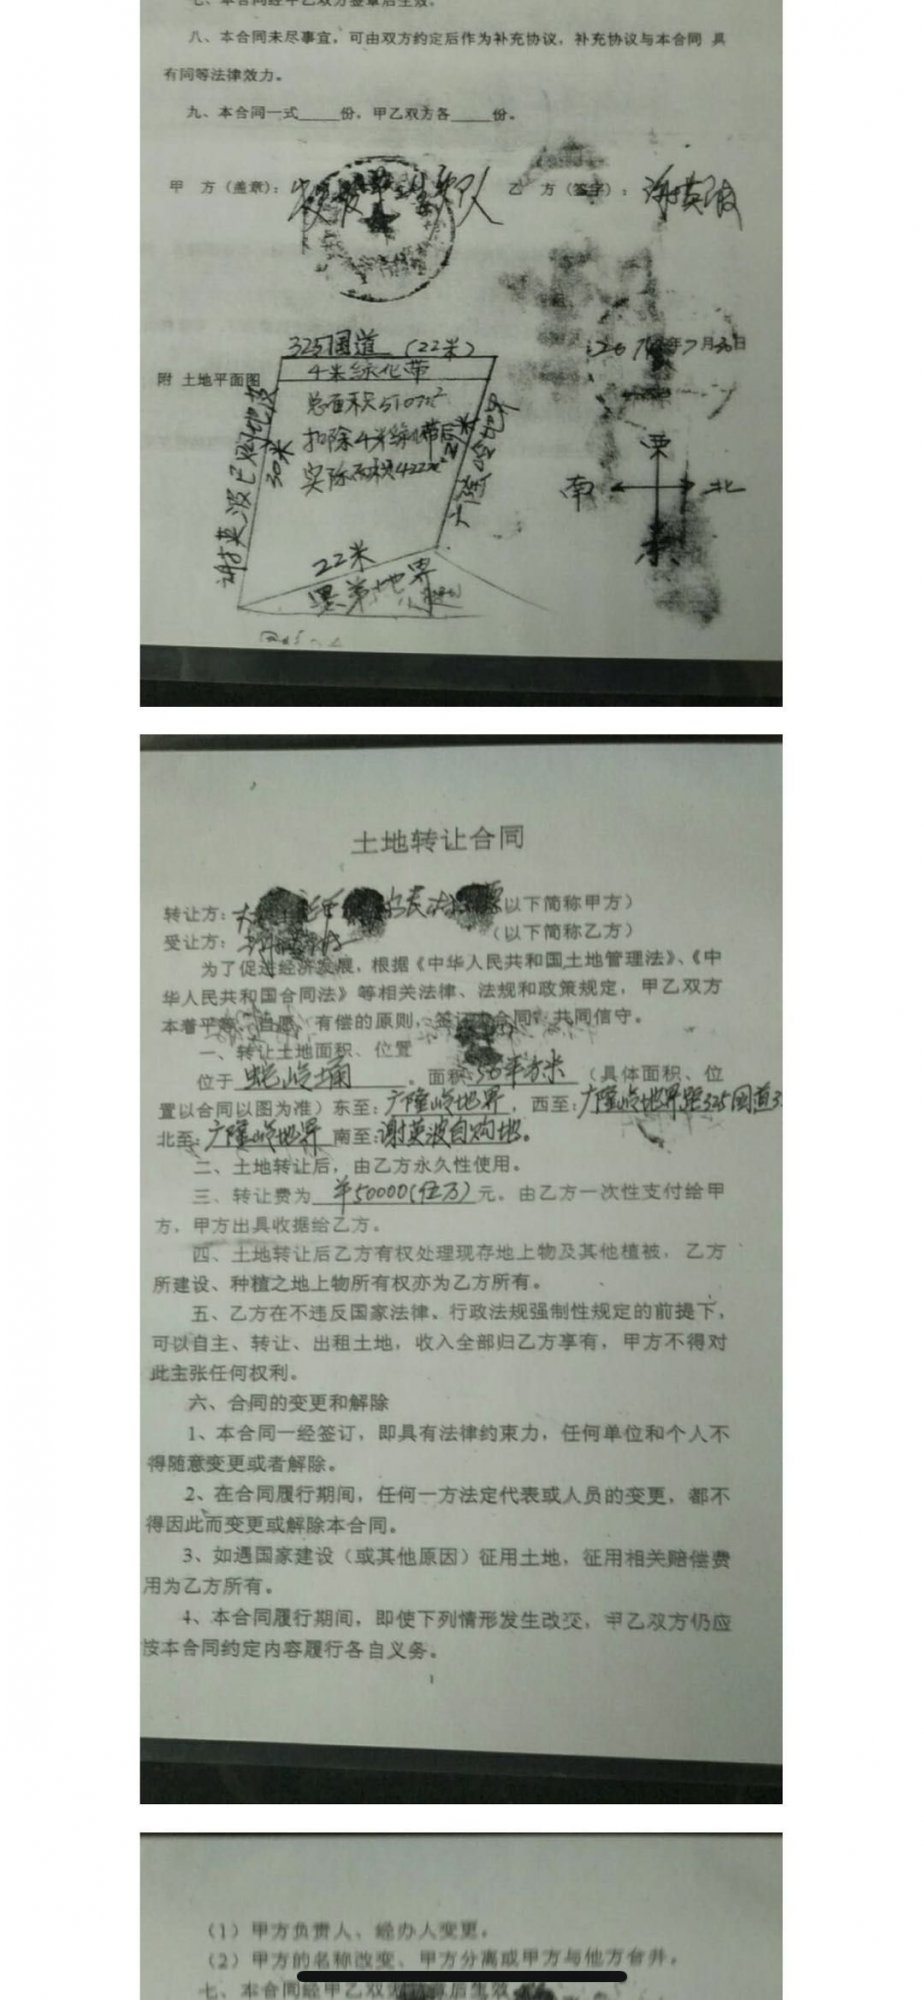 七、本合同经甲乙双方签章后生效。
八、本合同未尽事宜，可由双方约定后作为补充协议，补充协议与本合同 具
有同等法律效力。
九、本合同一式____份，甲乙双方各____份。
甲 方（盖章）：
乙 方（签字）：谢英波
年7月30日
附 土地平面图
325国道 （22米）
4米绿化带
总面积510m²
扣除4米绿化带后
实际面积422m²
谢英波已购地段
30米
22米
地界
南 北
土地转让合同
转让方：（以下简称甲方）
受让方：（以下简称乙方）
为了促进经济发展，根据《中华人民共和国土地管理法》、《中
华人民共和国合同法》等相关法律、法规和政策规定，甲乙双方
本着平等、自愿、有偿的原则，签订本合同，共同信守。
一、转让土地面积、位置
位于 。面积 平方米 （具体面积、位
置以合同以图为准）东至：广隆岭地界，西至：广隆岭地界距325国道
北至：广隆岭地界 南至：谢英波自购地。
二、土地转让后，由乙方永久性使用。
三、转让费为 ¥50000（伍万）元。由乙方一次性支付给甲
方，甲方出具收据给乙方。
四、土地转让后乙方有权处理现存地上物及其他植被， 乙方
所建设、种植之地上物所有权亦为乙方所有。
五、乙方在不违反国家法律、行政法规强制性规定的前提下，
可以自主、转让、出租土地，收入全部归乙方享有，甲方不得对
此主张任何权利。
六、合同的变更和解除
1、本合同一经签订，即具有法律约束力，任何单位和个人不
得随意变更或者解除。
2、在合同履行期间，任何一方法定代表或人员的变更，都不
得因此而变更或解除本合同。
3、如遇国家建设（或其他原因）征用土地，征用相关赔偿费
用为乙方所有。
4、本合同履行期间，即使下列情形发生改变，甲乙双方仍应
按本合同约定内容履行各自义务。
1
（1）甲方负责人、经办人变更。
（2）甲方的名称改变、甲方分离或甲方与他方合并。
七、本合同经甲乙双方签章后生效